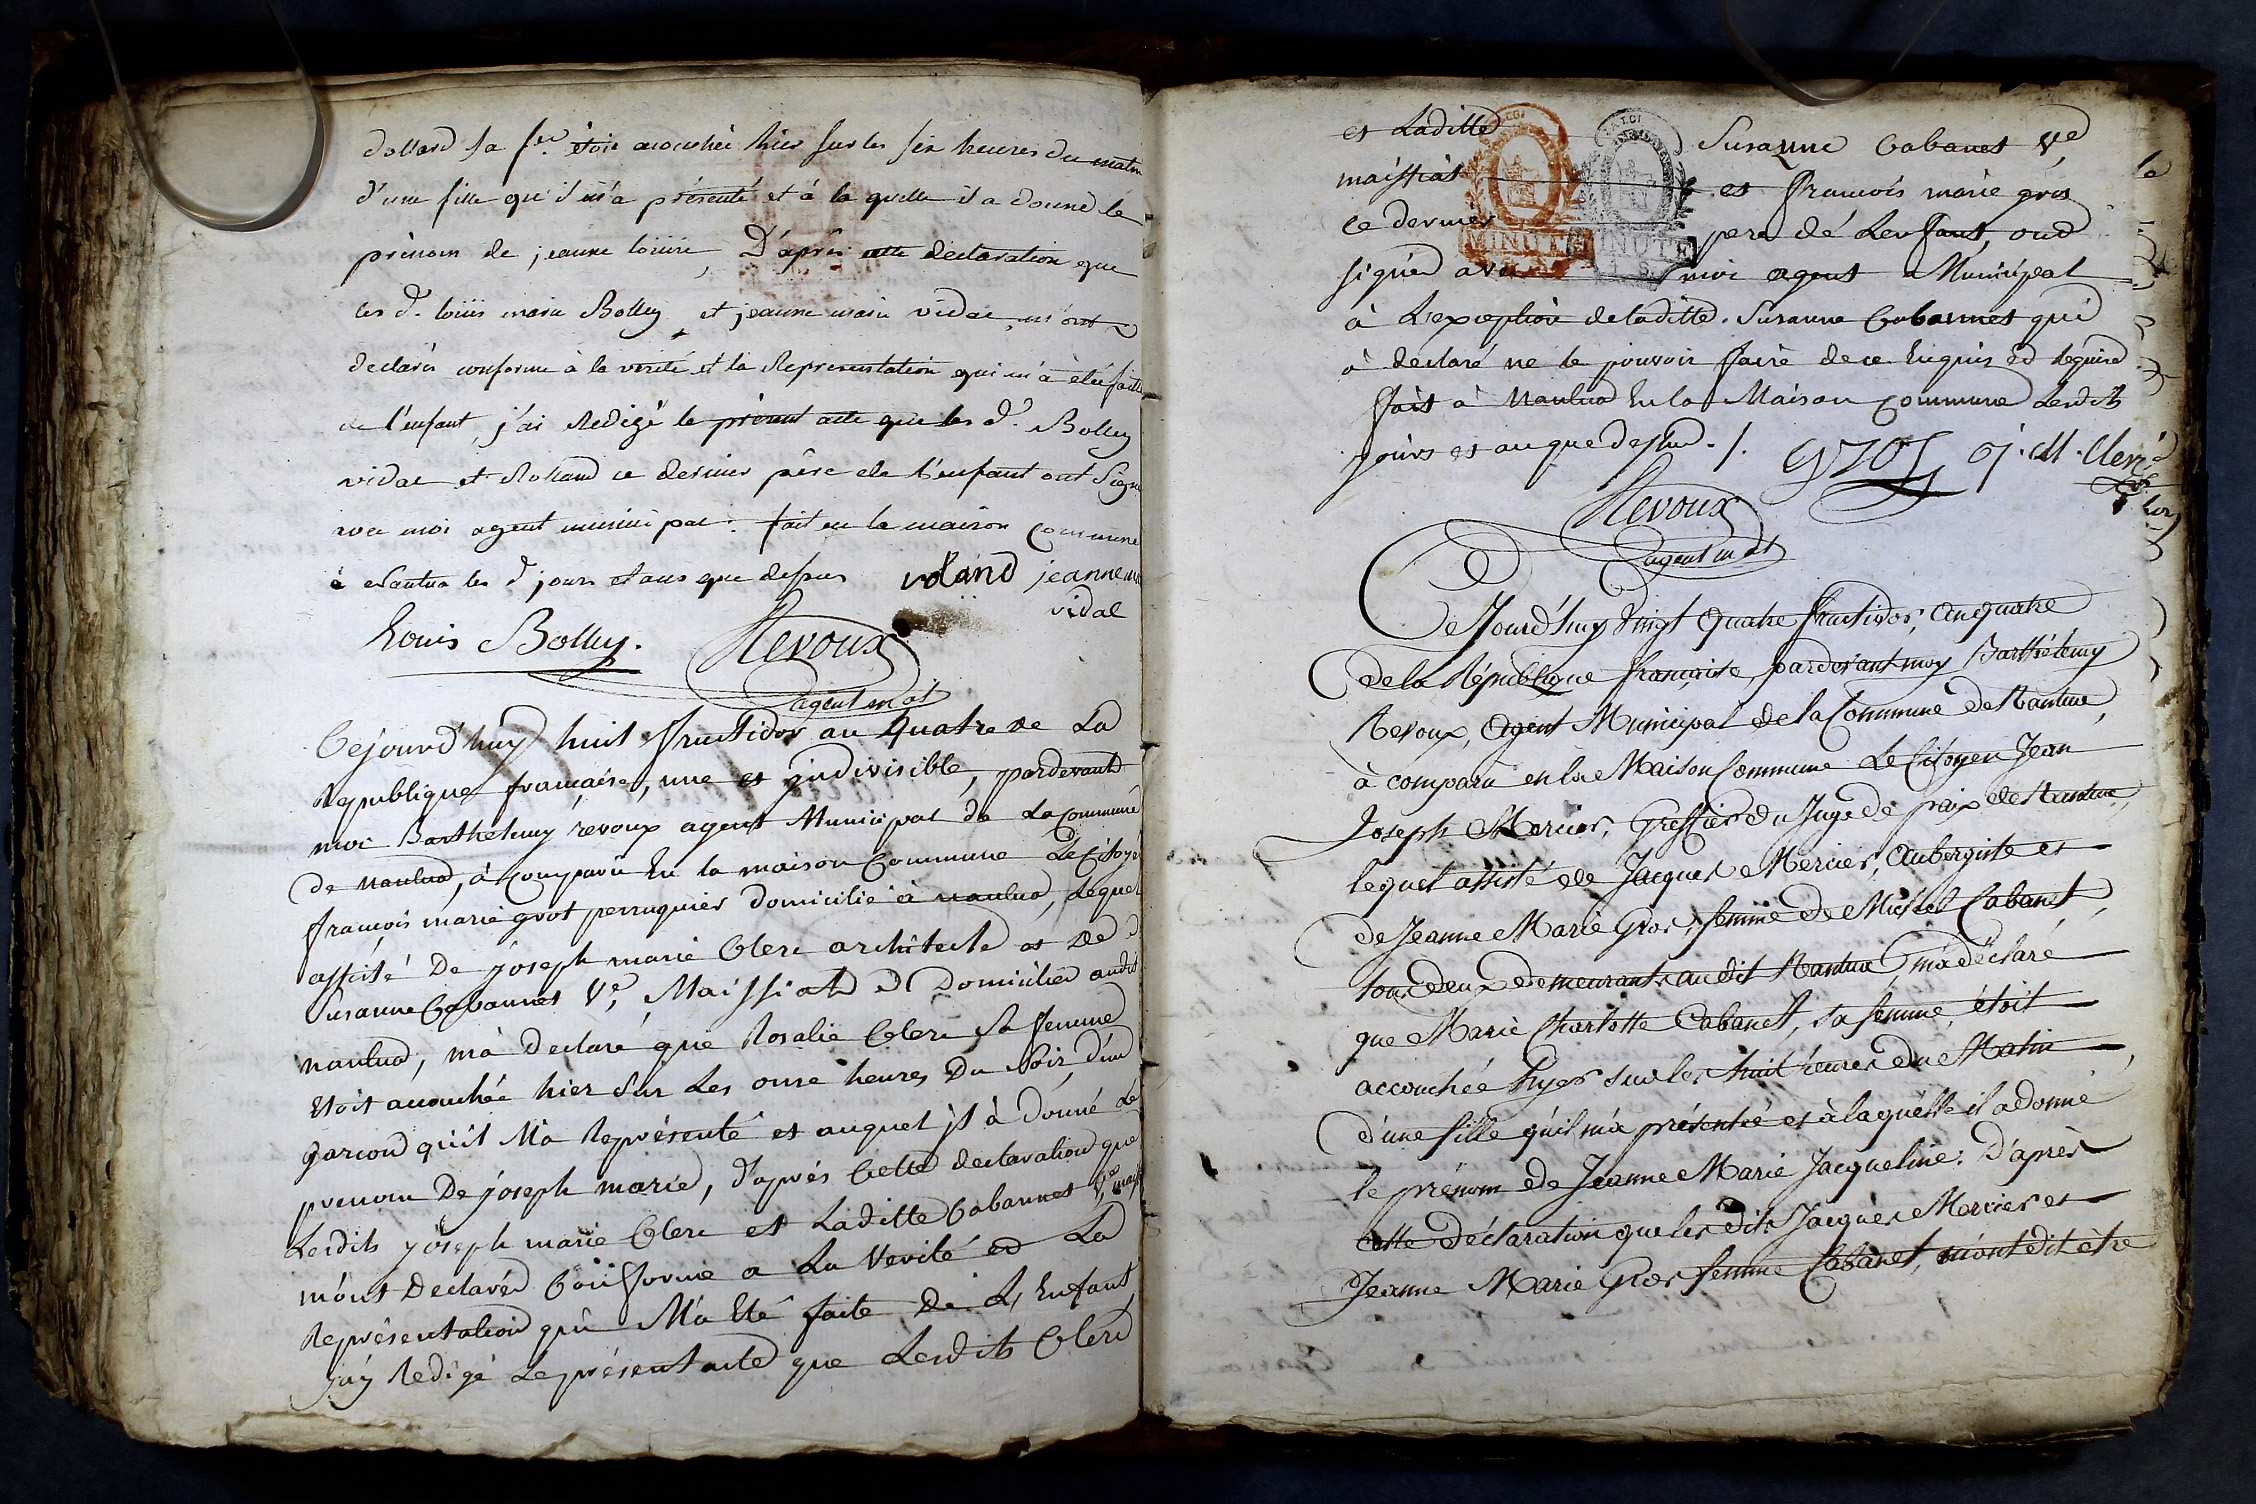 dollard sa fe. étoit acouchée hier sur les six heures du matin
d'une fille qu'il m'a présenté et à la quelle il a donné le
prénom de jeanne louise, D'après cette déclaration que
les d. louis marie Bolley et jeanne marie vidal m'ont
déclarés conforme à la vérité et la Représentation qui m'a été faitte
de l'enfant, j'ai Redigé le présent acte que les d. Bolley
vidal et Rolland ce dernier père de l'enfant ont Signé
avec moi agent municipal. fait en la maison commune
à Nantua les d. jours et ans que dessus roland jeanne m
vidal
Louis Bolley. Revoux
agent m al
Cejourd'huy huit fructidor an quatre de La
Republique française, une et jndivisible, pardevant
moi Barthelemy revoux agent Municipal de La Commune
de nantua, à Comparu En la maison Commune Le Citoyen
françois marie gros perruquier domicilié à nantua, Lequel
assisté De joseph marie Clerc architecte et De
Susanne Cabannes Ve, Maissiat Domiciliée audit
nantua, m'à declaré que Rosalie Clerc Sa femme
Etoit accouchée hier Sur Les onse heures Du Soir, d'un
garcon qu'il M'a Représenté et auquel jl à Donné Le
prenom De joseph marie, d'après Cette declaration que
Lesdits joseph marie Clerc et Laditte Cabannes Ve, mais
m'ont Declaréé Conforme a La Verité et La
Représentation qui M'a Eté faite De L'Enfant
J'ay Redigé Le présent acte que Lesdits Clerc
et Laditte Susanne Cabanes Ve
maissiat et francois marie gros
ce dernier pere dé L'enfant, ont
signé avec moi agent Municipal
à L'exception de laditte Susanne Cabannes qui
à declaré ne le pouvoir faire de ce Enquis et Requise
fait à Nantua En la Maison Commune Lesdits
jours et an que dessus ./. gros j. M. Clerc
Revoux
agent m al
Cejourd'huy Vingt quatre fructidor, an quatre
de la République française, pardevant moy Barthélemy
Revoux, Agent Municipal de la Commune de Nantua,
à comparu en la Maison Commune Le Citoyen Jean
Joseph Mercier, Greffier du Juge de paix de Nantua,
lequel assisté de Jacques Mercier, Aubergiste et
de Jeanne Marie Gros, femme de Michel Cabanet,
tous deux demeurants audit Nantua, m'a déclaré
que Marie Charlotte Cabanet, sa femme, étoit
accouchée hyer sur les huit heures du Matin,
d'une fille qu'il m'à présentée et à laquelle il a donné
le prénom de Jeanne Marie Jacqueline: D'après
cette déclaration que les dits Jacques Mercier et
Jeanne Marie Gros femme Cabanet, m'ont dit être